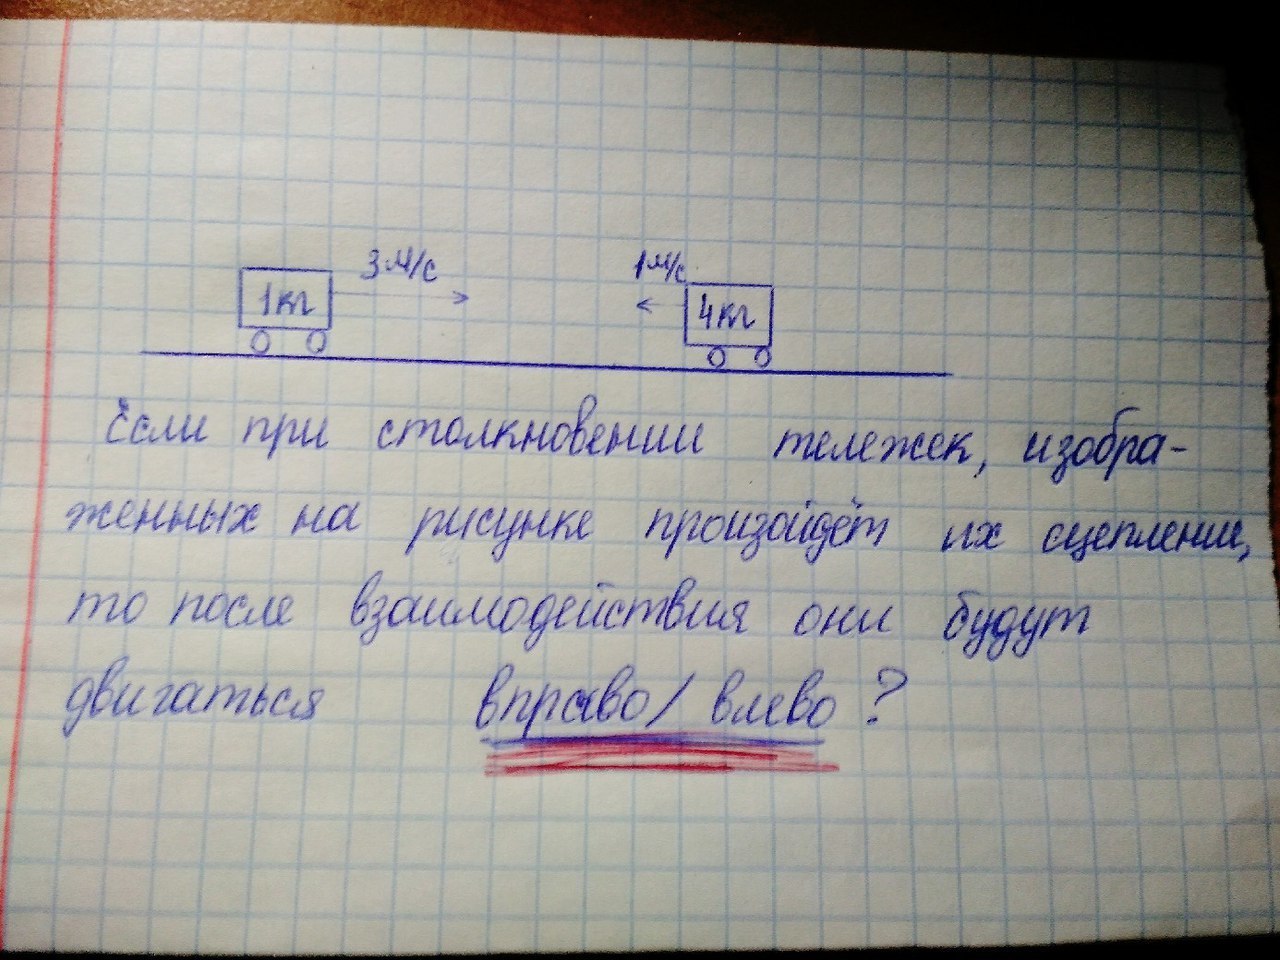 3 м/с
1 м/с
1 кг
4 кг
Если при столкновении тележек, изобра-
женных на рисунке произойдёт их сцепление,
то после взаимодействия они будут
двигаться вправо/ влево ?